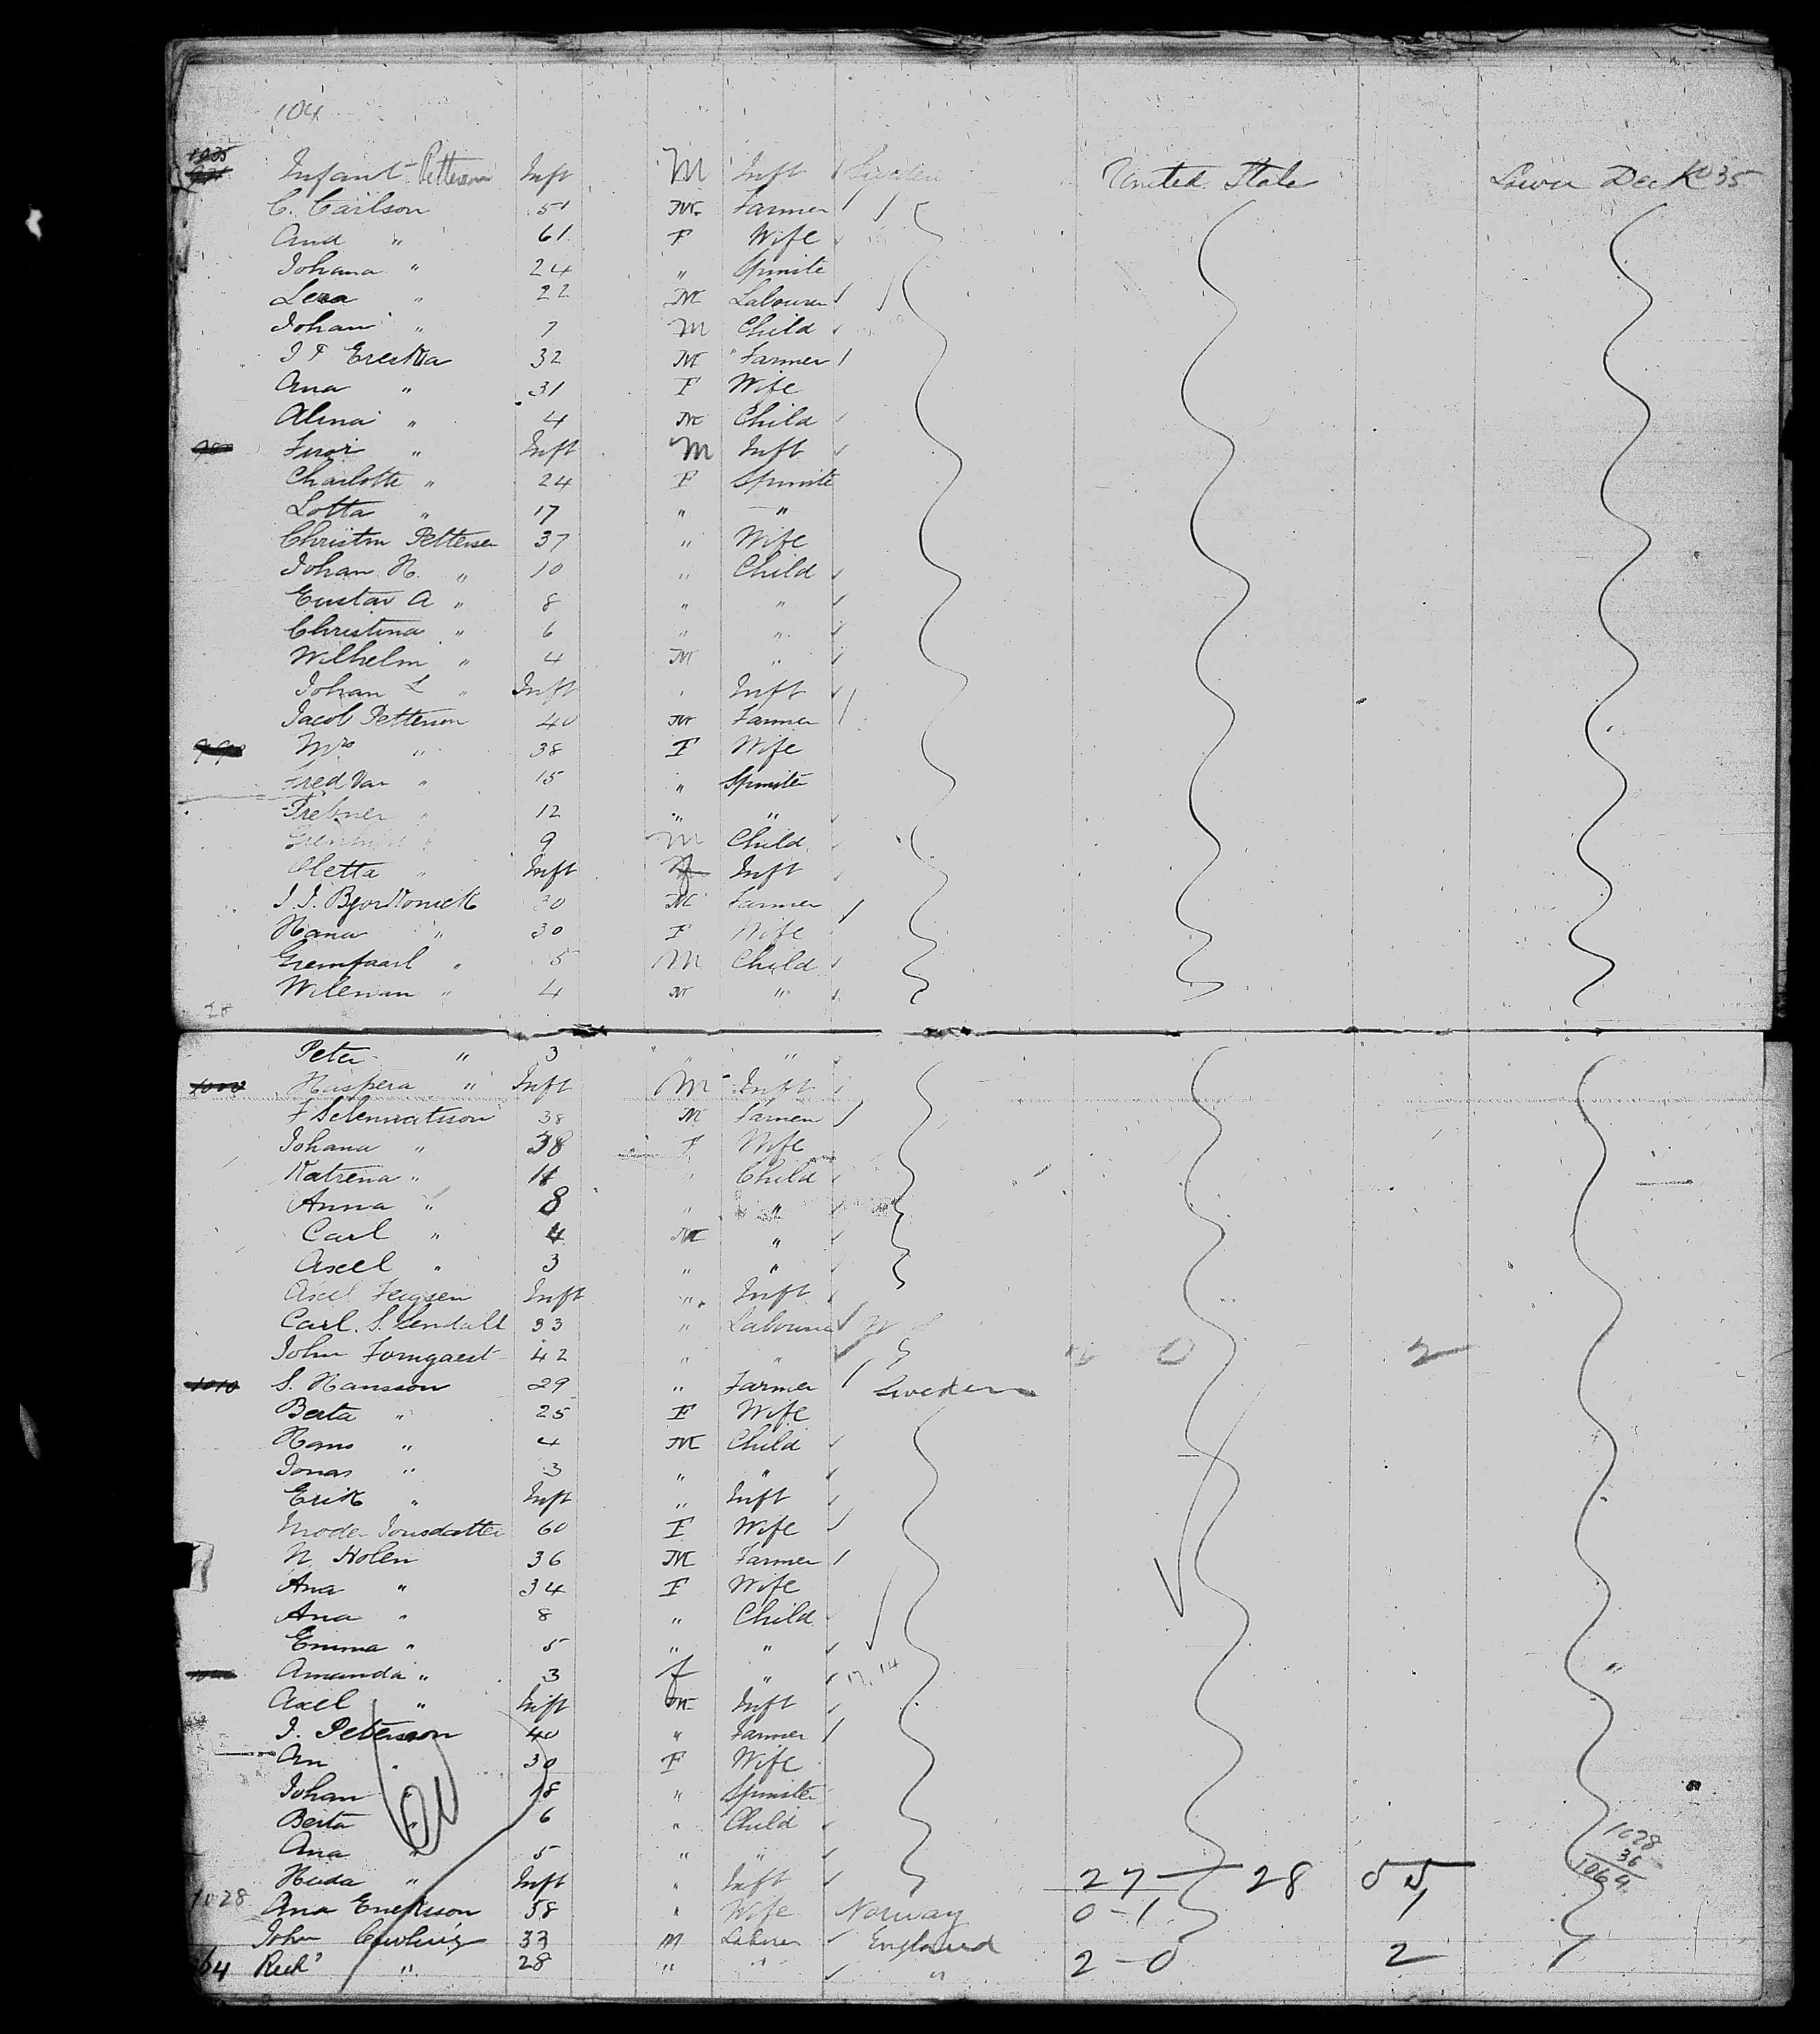 104
1035
Infant Petterson Inft M Inft Sweden United State Lower Deck 35
C. Carlson 51 M Farmer
And " 61 F Wife
Johana " 24 " Spinste
Lena " 22 M Labourer
Johan " 7 M Child
J F 32 M Farmer
Ana " 31 F Wife
Alina " 4 M Child
" Inft M Inft
Charlotte " 24 F Spinste
Lotta " 17 " "
Christin Petterson 37 " Wife
Johan H. " 10 " Child
Gustav A " 8 " "
Christina " 6 " "
Wilhelm " 4 M "
Johan L " Inft " Inft
Jacob Petterson 40 M Farmer
Mrs " 38 F Wife
Fred Van " 15 " Spinster
" 12 " "
" 9 M Child
Oletta " Inft f Inft
J. J. 30 M Farmer
Hana " 30 F Wife
" 5 M Child
" 4 M "
28
Peter " 3 " "
1000 Haspera " Inft M Inft
F 38 M Farmer
Johana " 38 F Wife
Katrena " 11 " Child
Anna " 8 " "
Carl " 4 M "
Axel " 3 " "
Axel Inft " Inft
Carl. S. Lendall 33 " Labourer
John 42 " " 2 0 2
1010 S. Hansson 29 " Farmer Sweden
Berta " 25 F Wife
Hans " 4 M Child
Jonas " 3 " "
Erik " Inft " Inft
Jonsdatter 60 F Wife
N. Holen 36 M Farmer
Ana " 34 F Wife
Ana " 8 " Child
Emma " 5 " "
Amanda " 3 f " 17.14
Axel " Inft M Inft
J. Peterson 40 " Farmer
An " 30 F Wife
Johan " 18 " Spinster
Berta " 6 " Child
Ana " 5 " "
1028
36
1064
Huda " Inft " Inft 27 - 28 55
1028 Ana Enersson 58 " Wife Norway 0-1 1
John 33 M Laborer England
64 Richd " 28 " " " 2-0 2